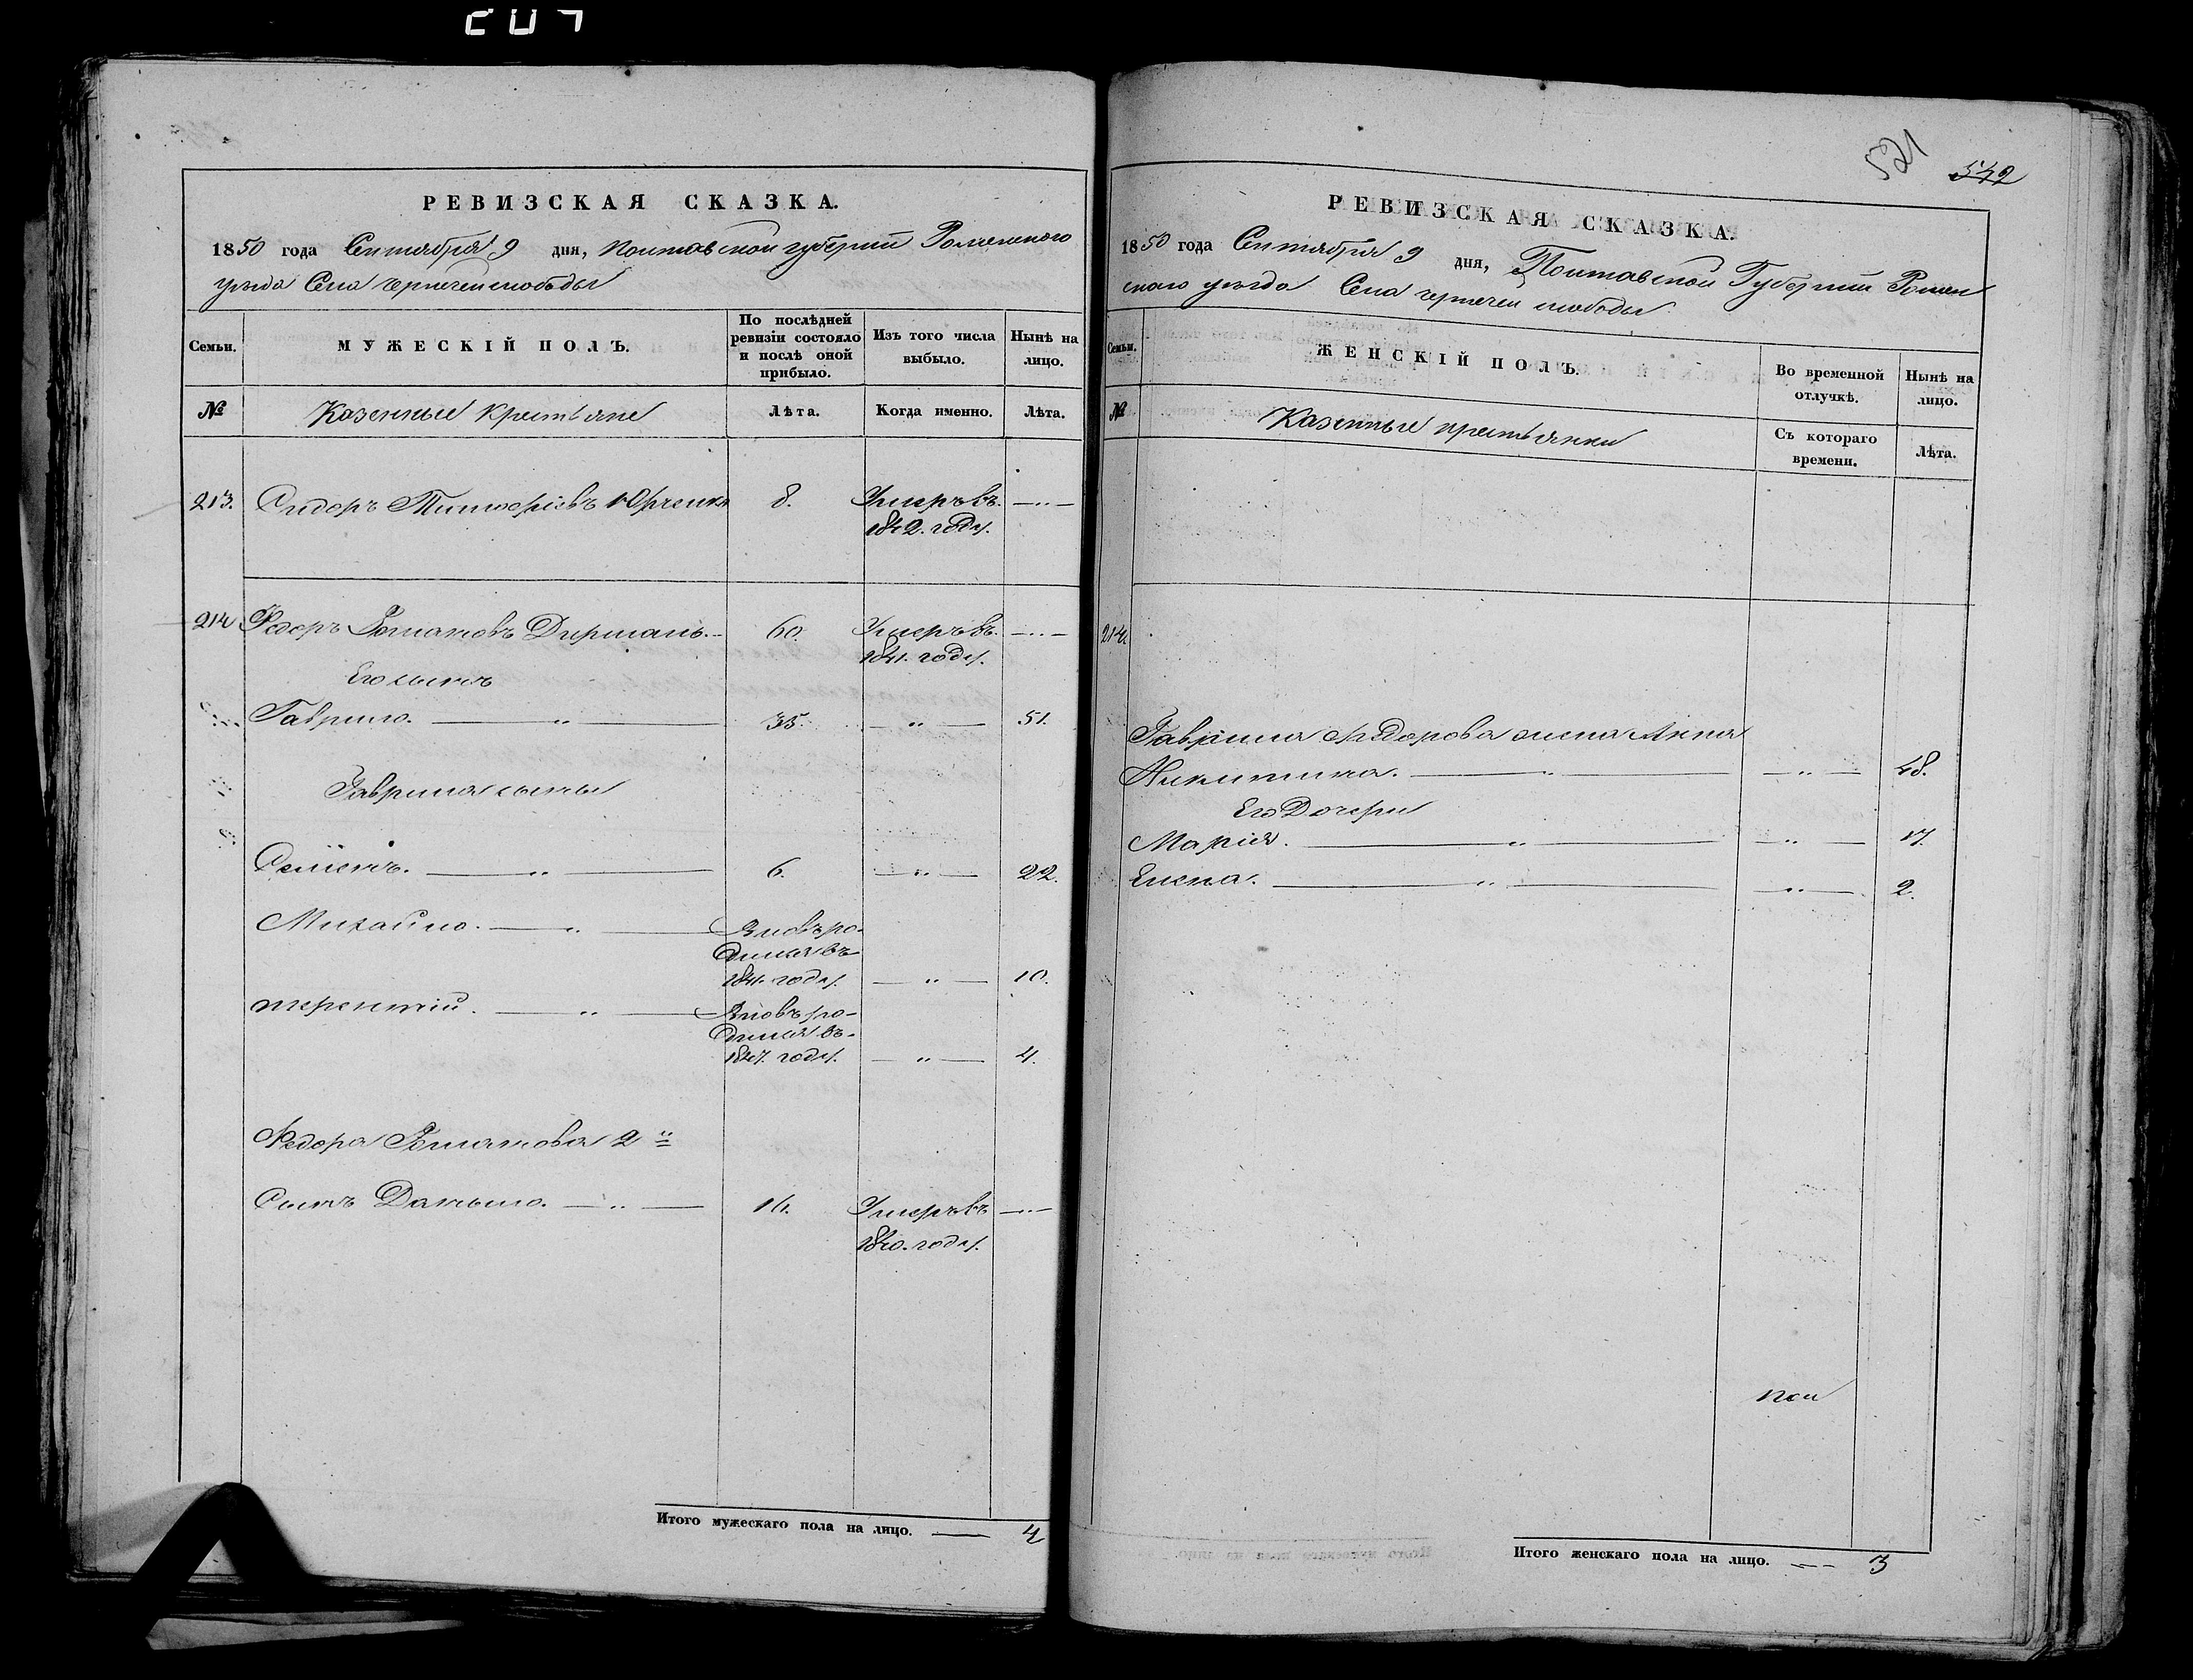 РЕВИЗСКАЯ СКАЗКА.
1850 года Сентября 9 дня, Полтавской губернии Роменского
уезда Села Чернечей слободы
Семьи.
МУЖЕСКІЙ ПОЛЪ.
По послѣдней ревизіи состояло и послѣ оной прибыло.
Изъ того числа выбыло.
Нынѣ на лицо.
№
Казенные крестьяне
Лѣта.
Когда именно.
Лѣта.
213. Сидоръ Тимофеіевъ Юрченко 8. Умеръ въ 1842. году. —〃—
214 Федоръ Романовъ Дирманъ. 60. Умеръ въ 1841. году. —〃—
Его сынъ
Гаврило. —〃— 35. —〃— 51.
Гаврила сыны
Семенъ. —〃— 6. —〃— 22.
Михайло. —〃— Вновь ро-
дился въ
1841. году. —〃— 10.
терентій. —〃— Вновь ро-
дился въ
1847. году. —〃— 4.
Федора Романова 2й
Сынъ Данило. —〃— 16. Умеръ въ —〃—
1840. году.
Итого мужескаго пола на лицо. — 4
521 542
РЕВИЗСКАЯ СКАЗКА.
1850 года Сентября 9 дня, Полтавской Губернии Ромен
ского уезда Села чернечей слободы
Семьи.
ЖЕНСКІЙ ПОЛЪ.
Во временной отлучкѣ.
Нынѣ на лицо.
№
Казенные крестьянки
Съ котораго времени.
Лѣта.
214.
Гаврила Федорова жена Анна
Никитина. —〃— —〃— 48.
Его Дочери
Марія. —〃— —〃— 17.
Елена. —〃— —〃— 2.
Итого женскаго пола на лицо. — 3